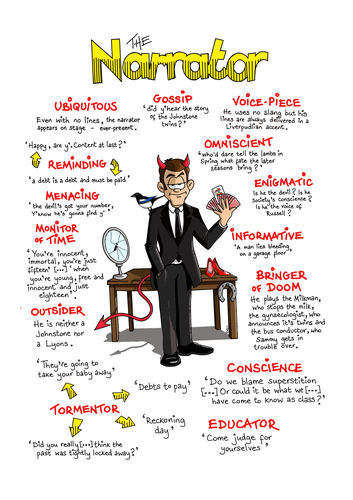 THE
Narrator
UBIQUITOUS
Even with no lines, the narrator
appears on stage - ever-present.
GOSSIP
'did y'hear the story
of the Johnstone
twins?'
VOICE-PIECE
He uses no slang but his
lines are always delivered in a
Liverpudlian accent.
'Happy, are y'. Content at last?'
REMINDING
'a debt is a debt and must be paid'
OMNISCIENT
'who'd dare tell the lambs in
Spring what fate the later
seasons bring?'
MENACING
'the devil's got your number,
Y'know he's gonna find y'.'
ENIGMATIC
Is he the devil? Is he
Society's conscience?
Is he the voice of
Russell?
MONITOR
OF TIME
'You're innocent,
immortal, you're just
fifteen' [...] 'when
you're young, free and
innocent and just
eighteen'.
INFORMATIVE
'A man lies bleeding
on a garage floor'
BRINGER
OF DOOM
He plays the Milkman,
who stops the milk,
the gynaecologist, who
announces it's twins and
the bus conductor, who
Sammy gets in
trouble over.
OUTSIDER
He is neither a
Johnstone nor
a Lyons.
'They're going to
take your baby away'
TORMENTOR
'Debts to pay'
'Reckoning
day'
'Did you really [...] think the
past was tightly locked away?'
CONSCIENCE
'Do we blame superstition
[...] Or could it be what we [...]
have come to know as class?'
EDUCATOR
'Come judge for
yourselves'